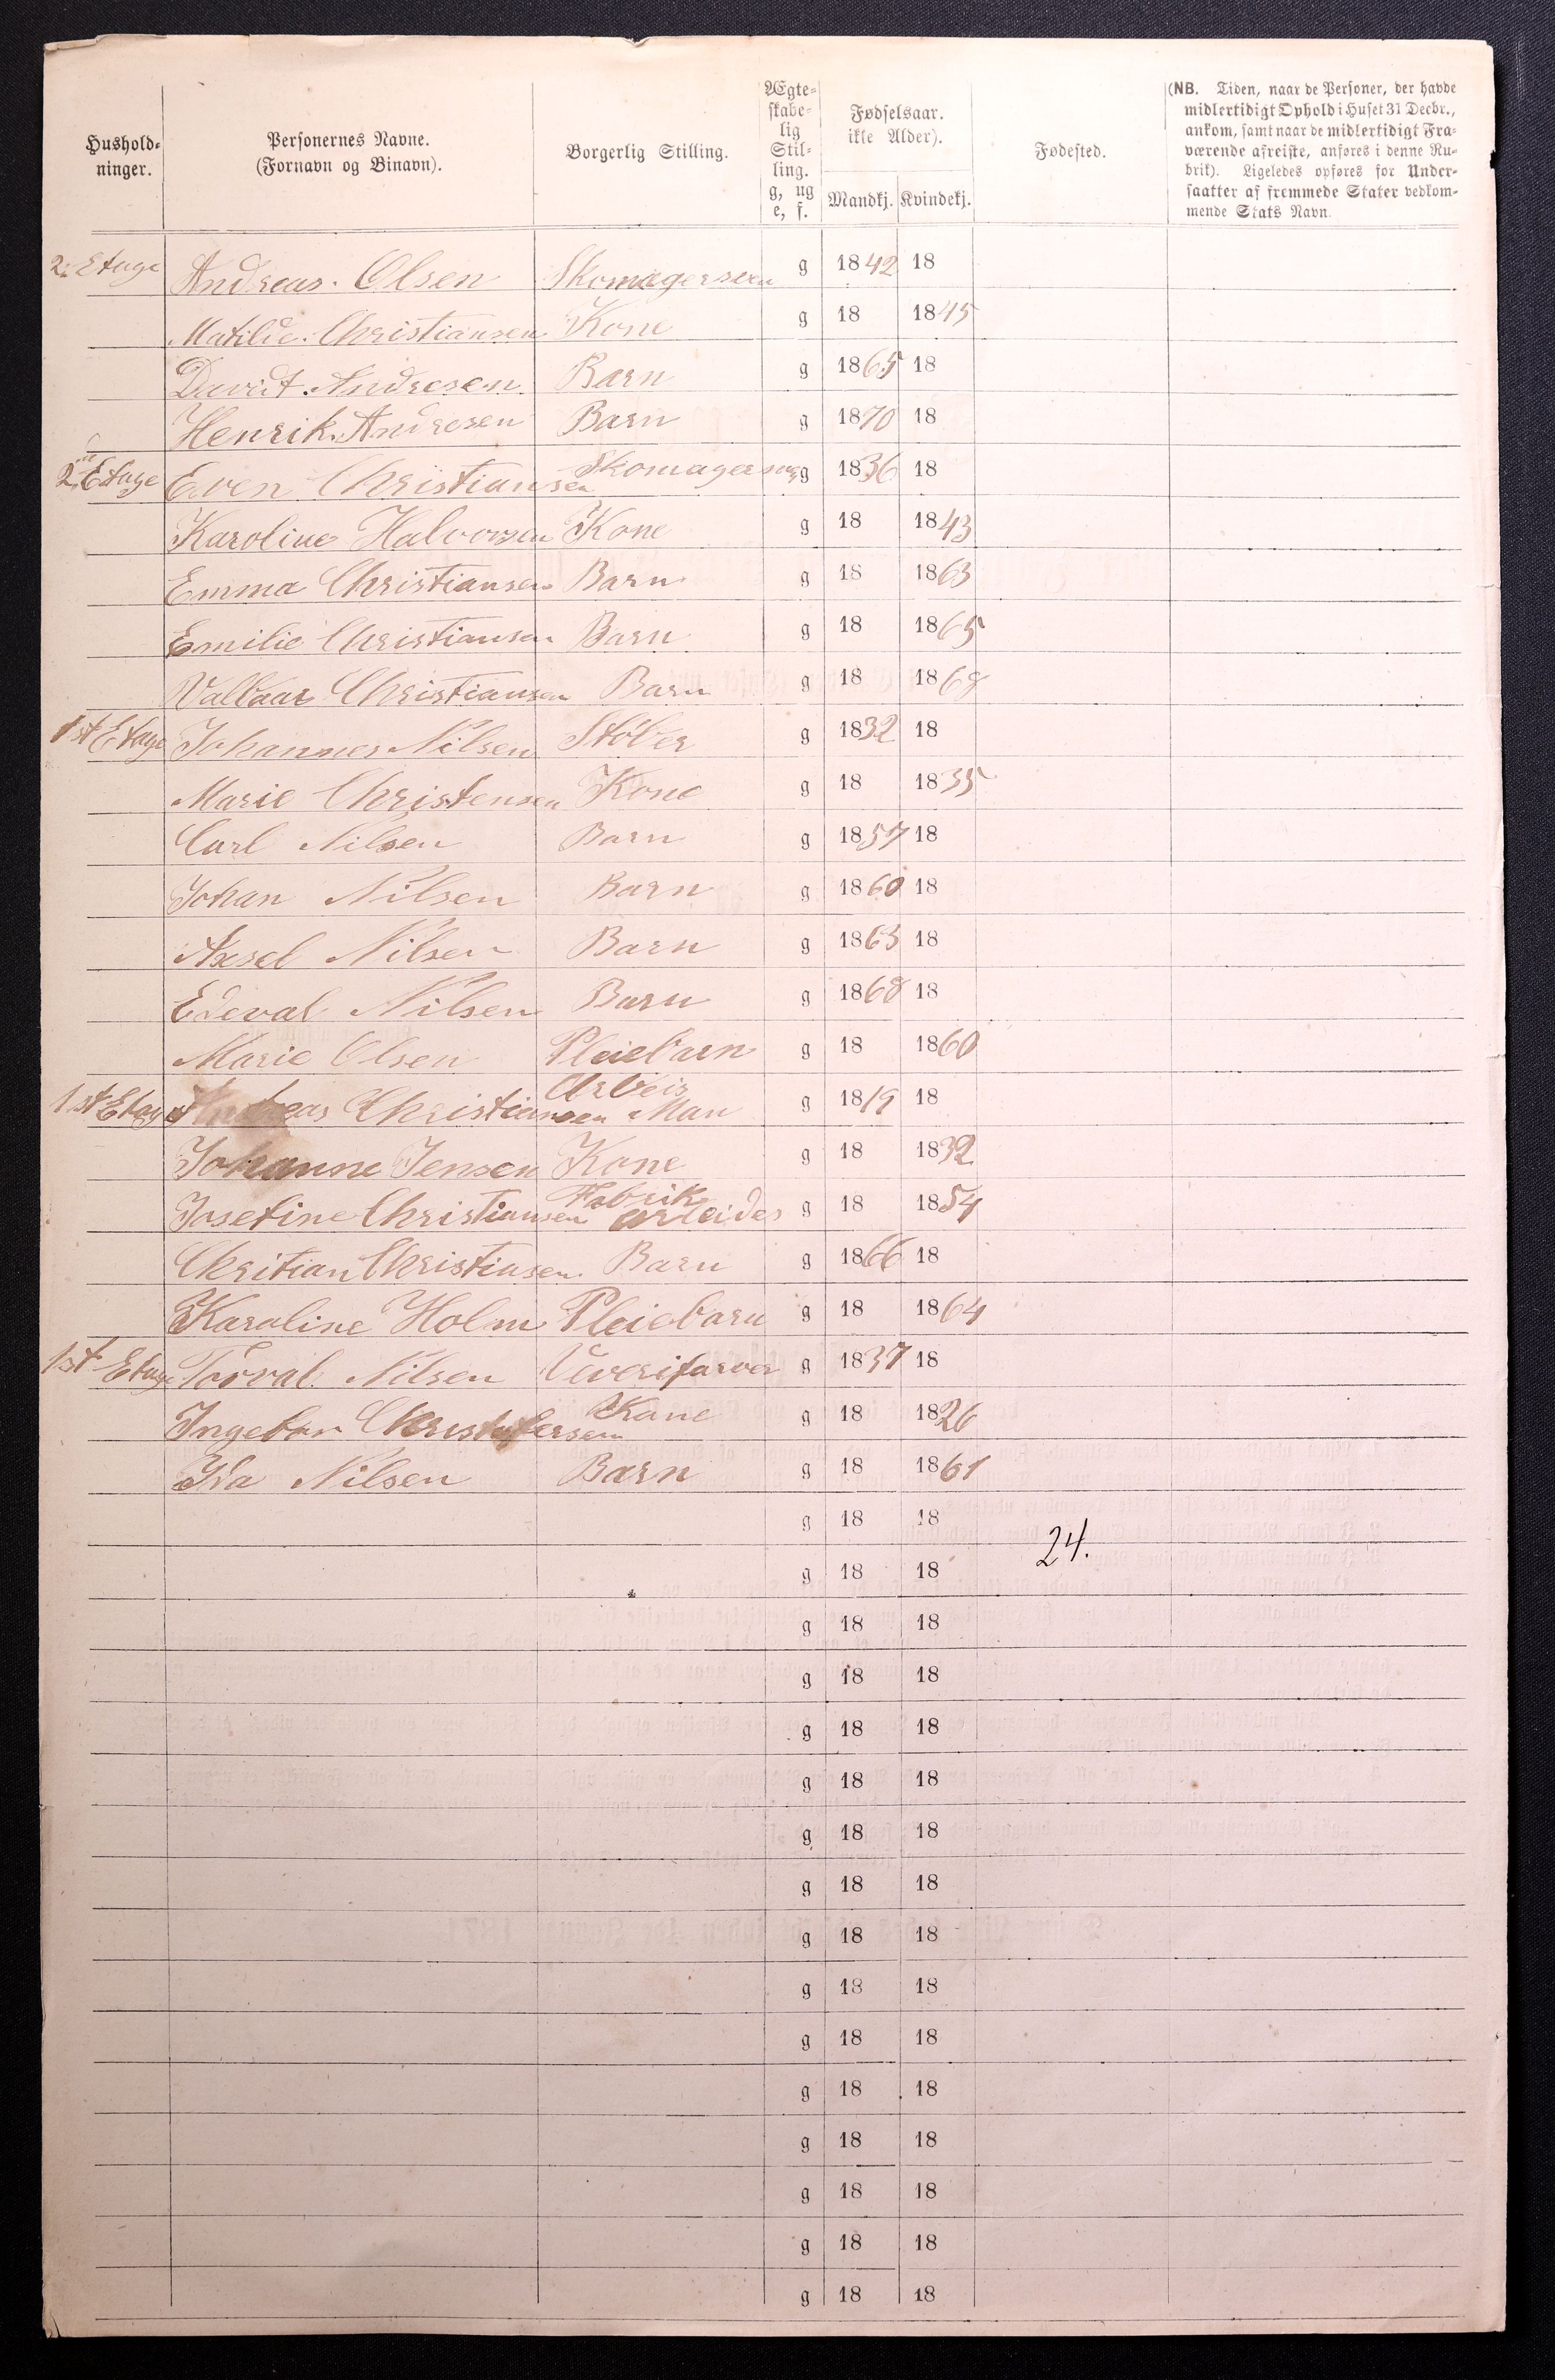 Hushold-
ninger.
Personernes Navne.
(Fornavn og Binavn).
Borgerlig Stilling.
Ægte-
skabe-
lig
Stil-
ling.
g, ug
e, f.
Fødselsaar.
ikke Alder).
Mandkj. Kvindekj.
Fødested.
(NB. Tiden, naar de Personer, der havde
midlertidigt Ophold i Huset 31 Decbr.,
ankom, samt naar de midlertidigt Fra-
værende afreiste, anføres i denne Ru-
brik). Ligeledes opføres for Under-
saatter af fremmede Stater vedkom-
mende Stats Navn.
2. Etage Andreas. Olsen Skomagersven g 1842 18
Matilde. Christiansen Kone g 18 1845
Davidt. Andresen Barn g 1865 18
Henrik. Andresen Barn g 1870 18
2. Etage Even Christiansen Skomager g 1836 18
Karoline Halvorsen Kone g 18 1843
Emma Christiansen Barn g 18 1863
Emilie Christiansen Barn g 18 1865
Valbaar Christiansen Barn g 18 1868
1st Etage Johannes Nilsen Stöber g 1832 18
Marie Christensen Kone g 18 1835
Carl Nilsen Barn g 1857 18
Johan Nilsen Barn g 1860 18
Axsel Nilsen Barn g 1863 18
Edeval Nilsen Barn g 1868 18
Marie Olsen Pleiebarn g 18 1860
1st Etag Andreas Christiansen Arbeis Man g 1819 18
Johanne Jensen Kone g 18 1832
Josefine Christiansen Fabrik arbeider g 18 1854
Chritian Christiasen Barn g 1866 18
Karaline Holm Pleiebarn g 18 1864
1st Etage Torval Nilsen Væverifarver g 1837 18
Ingebor Christofersen Kone g 18 1826
Ida Nilsen Barn g 18 1861
g 18 18
24.
g 18 18
g 18 18
g 18 18
g 18 18
g 18 18
g 18 18
g 18 18
g 18 18
g 18 18
g 18 18
g 18 18
g 18 18
g 18 18
g 18 18
g 18 18